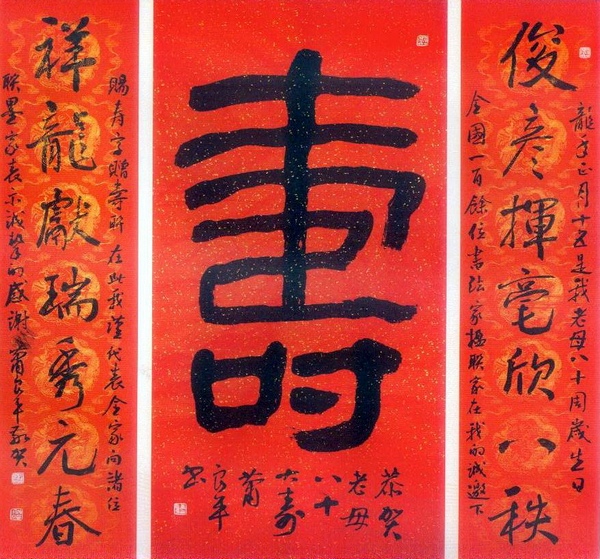 龍年正月十五是我老母八十周歲生日
俊彦揮毫欣八秩
全國一百餘位書法家楹聯家在我的誠邀下
壽
恭賀
老母
八十
大壽
蕭
良
書
賜壽字贈壽聯在此我謹代表全家向諸位
祥龍獻瑞秀元春
聯墨家表示誠摯的感謝蕭良